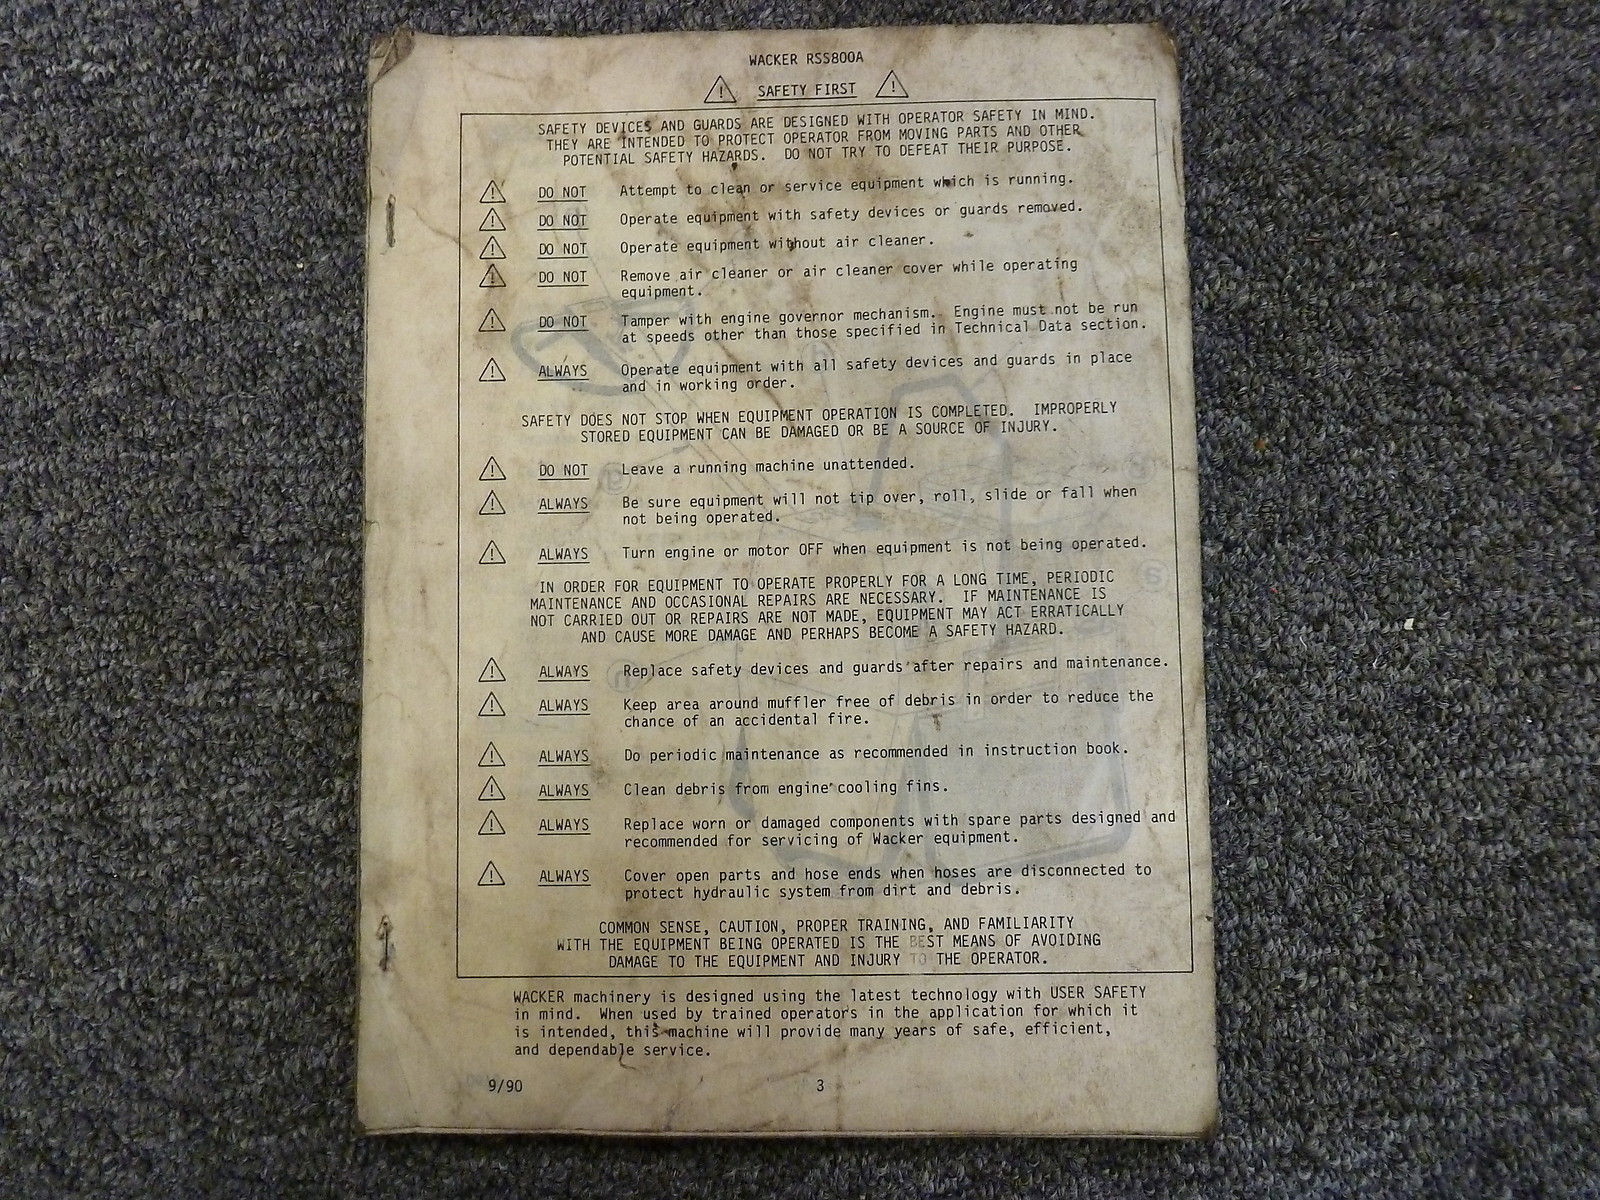 WACKER RSS800A
SAFETY FIRST
SAFETY DEVICES AND GUARDS ARE DESIGNED WITH OPERATOR SAFETY IN MIND.
THEY ARE INTENDED TO PROTECT OPERATOR FROM MOVING PARTS AND OTHER
POTENTIAL SAFETY HAZARDS. DO NOT TRY TO DEFEAT THEIR PURPOSE.
DO NOT Attempt to clean or service equipment which is running.
DO NOT Operate equipment with safety devices or guards removed.
DO NOT Operate equipment without air cleaner.
DO NOT Remove air cleaner or air cleaner cover while operating
equipment.
DO NOT Tamper with engine governor mechanism. Engine must not be run
at speeds other than those specified in Technical Data section.
ALWAYS Operate equipment with all safety devices and guards in place
and in working order.
SAFETY DOES NOT STOP WHEN EQUIPMENT OPERATION IS COMPLETED. IMPROPERLY
STORED EQUIPMENT CAN BE DAMAGED OR BE A SOURCE OF INJURY.
DO NOT Leave a running machine unattended.
ALWAYS Be sure equipment will not tip over, roll, slide or fall when
not being operated.
ALWAYS Turn engine or motor OFF when equipment is not being operated.
IN ORDER FOR EQUIPMENT TO OPERATE PROPERLY FOR A LONG TIME, PERIODIC
MAINTENANCE AND OCCASIONAL REPAIRS ARE NECESSARY. IF MAINTENANCE IS
NOT CARRIED OUT OR REPAIRS ARE NOT MADE, EQUIPMENT MAY ACT ERRATICALLY
AND CAUSE MORE DAMAGE AND PERHAPS BECOME A SAFETY HAZARD.
ALWAYS Replace safety devices and guards after repairs and maintenance.
ALWAYS Keep area around muffler free of debris in order to reduce the
chance of an accidental fire.
ALWAYS Do periodic maintenance as recommended in instruction book.
ALWAYS Clean debris from engine cooling fins.
ALWAYS Replace worn or damaged components with spare parts designed and
recommended for servicing of Wacker equipment.
ALWAYS Cover open parts and hose ends when hoses are disconnected to
protect hydraulic system from dirt and debris.
COMMON SENSE, CAUTION, PROPER TRAINING, AND FAMILIARITY
WITH THE EQUIPMENT BEING OPERATED IS THE BEST MEANS OF AVOIDING
DAMAGE TO THE EQUIPMENT AND INJURY TO THE OPERATOR.
WACKER machinery is designed using the latest technology with USER SAFETY
in mind. When used by trained operators in the application for which it
is intended, this machine will provide many years of safe, efficient,
and dependable service.
9/90 3